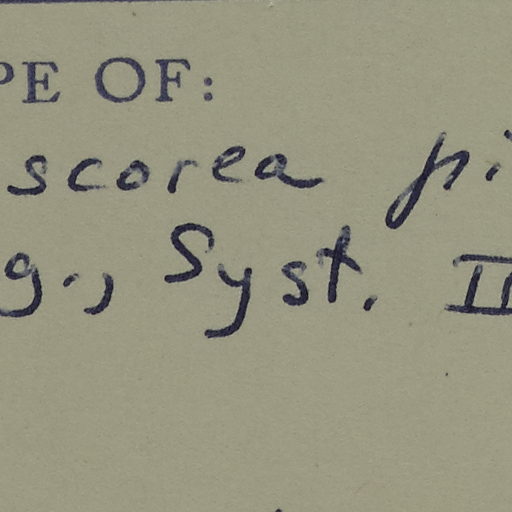 PE OF:
scorea pi
g., Syst. II